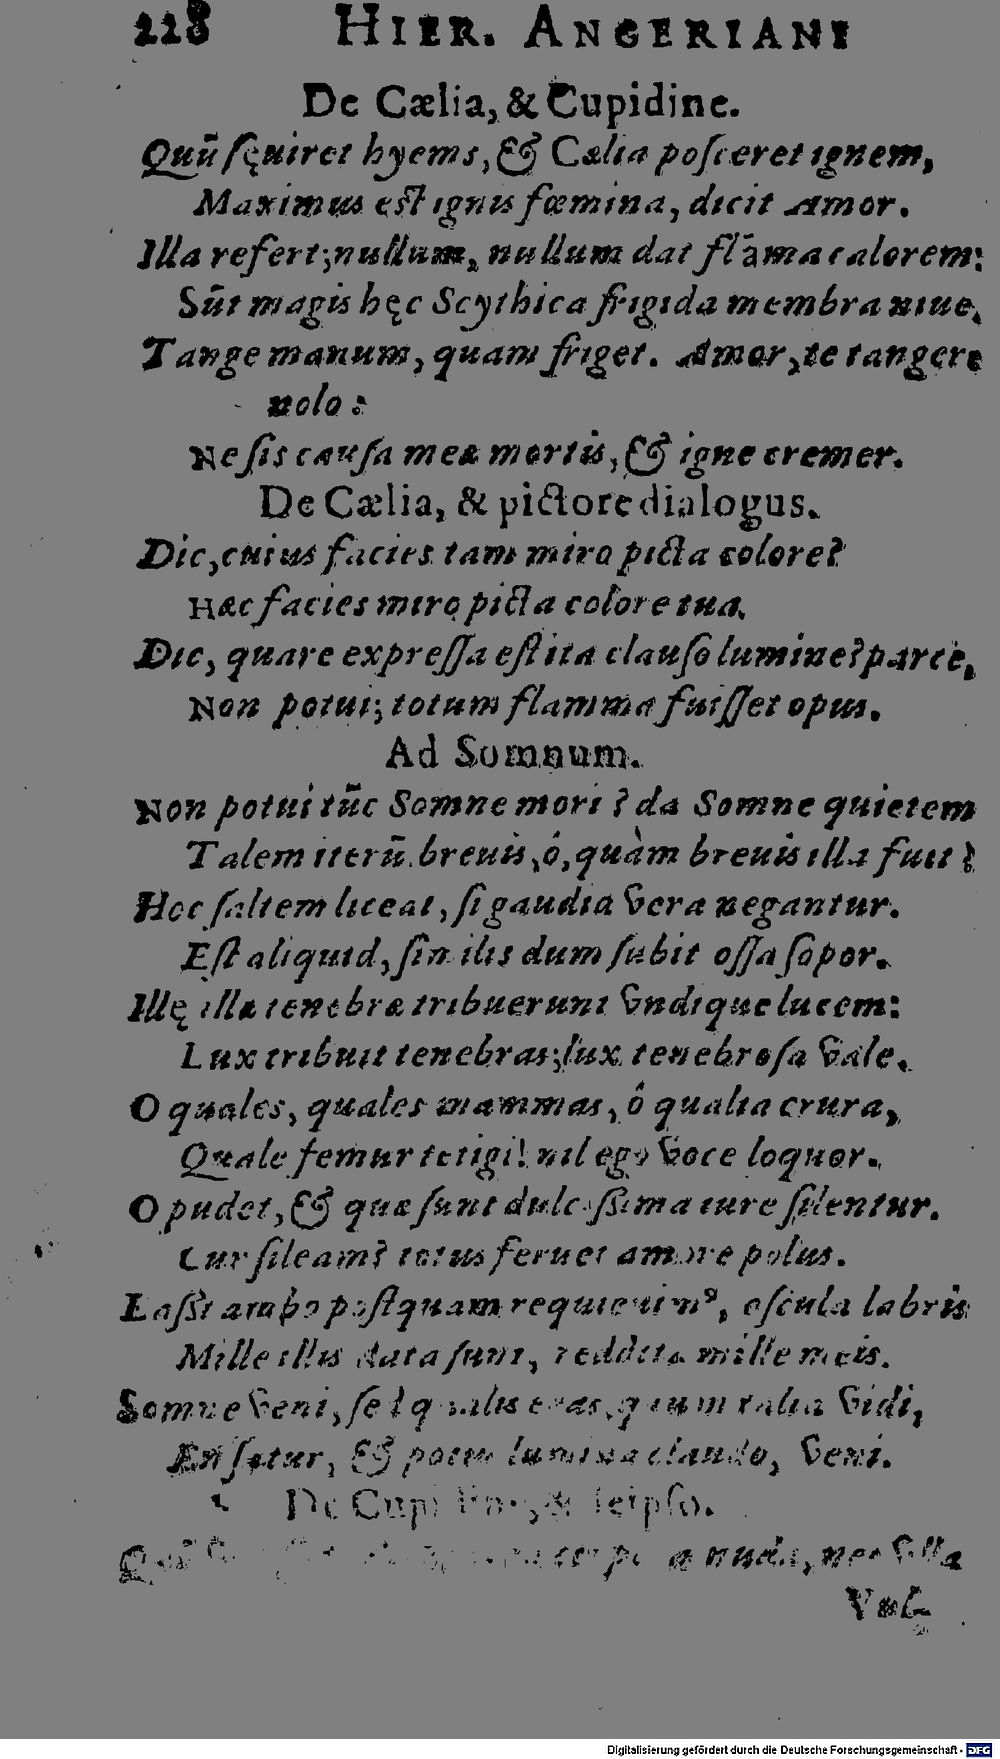 228 HIER. ANGERIANI
De Cælia, & Cupidine.
Quũ sęuiret hyems, & Cælia posceret ignem,
Maximus est ignis fœmina, dicit Amor.
Illa refert; nullum, nullum dat flãma calorem:
Sũt magis hęc Scythica frigida membra niue.
Tange manum, quam friget. Amor, te tangere
nolo:
Ne sis causa meæ mortis, & igne cremer.
De Cælia, & pictore dialogus.
Dic, cuius facies tam miro picta colore?
Hæc facies miro picta colore tua.
Dic, quare expressa est ita clauso lumine? parce,
Non potui; totum flamma fuisset opus.
Ad Somnum.
Non potui tũc Somne mori? da Somne quietem
Talem iterũ. breuis, ó, quàm breuis illa fuit?
Hoc saltem liceat, si gaudia vera negantur.
Est aliquid, similis dum subit ossa sopor.
Illę illæ tenebræ tribuerunt vndique lucem:
Lux tribuit tenebras; lux tenebrosa vale.
O quales, quales mammas, ô qualia crura,
Quale femur tetigi! nil ego voce loquor.
O pudet, & quæ sunt dulcissima iure silentur.
Cur sileam? totus feruet amore polus.
Lassi ambo postquam requieuimꝰ, oscula labris
Mille illis data sunt, reddita mille meis.
Somne veni, sed qualis eras, quum talia vidi,
En satur, & potus lumina claudo, veni.
De Cupidine, & seipso.
nuda, nec villa
Vul-
Digitalisierung gefördert durch die Deutsche Forschungsgemeinschaft - DFG